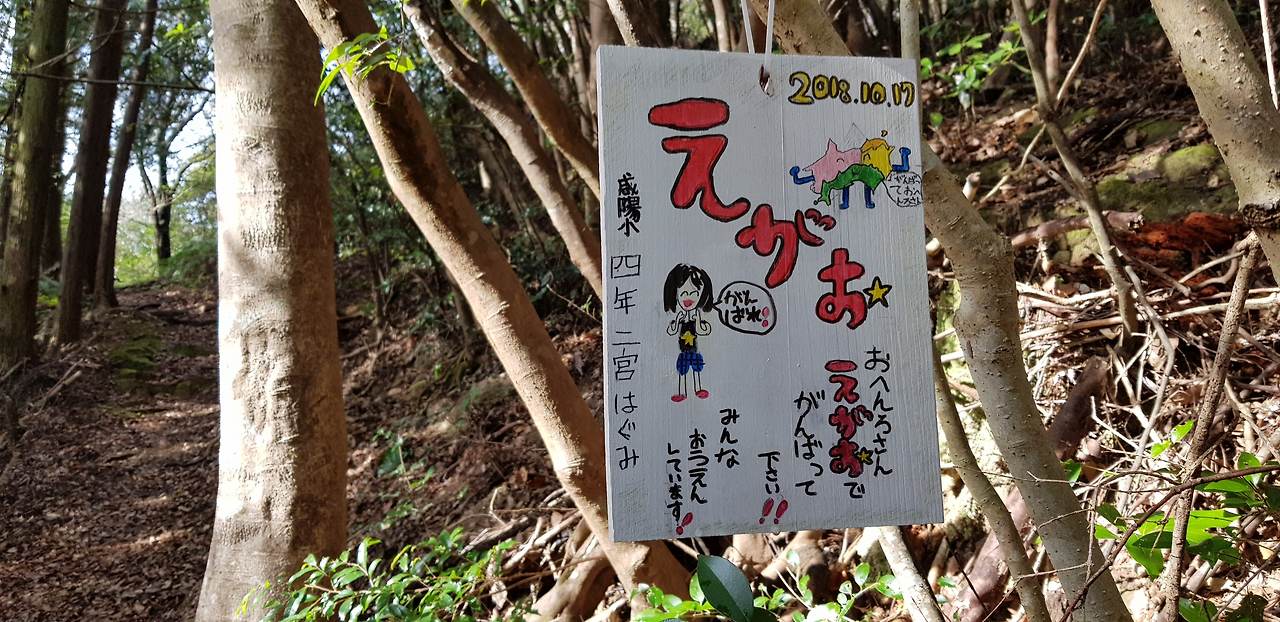 2018.10.17
えがお
がんばっ
ておへ
んろさん
おへんろさん
えがおで
がんばって
下さい!!
みんな
おうえん
しています!!
がんばれ!!
咸陽小 四年 二宮 はぐみ